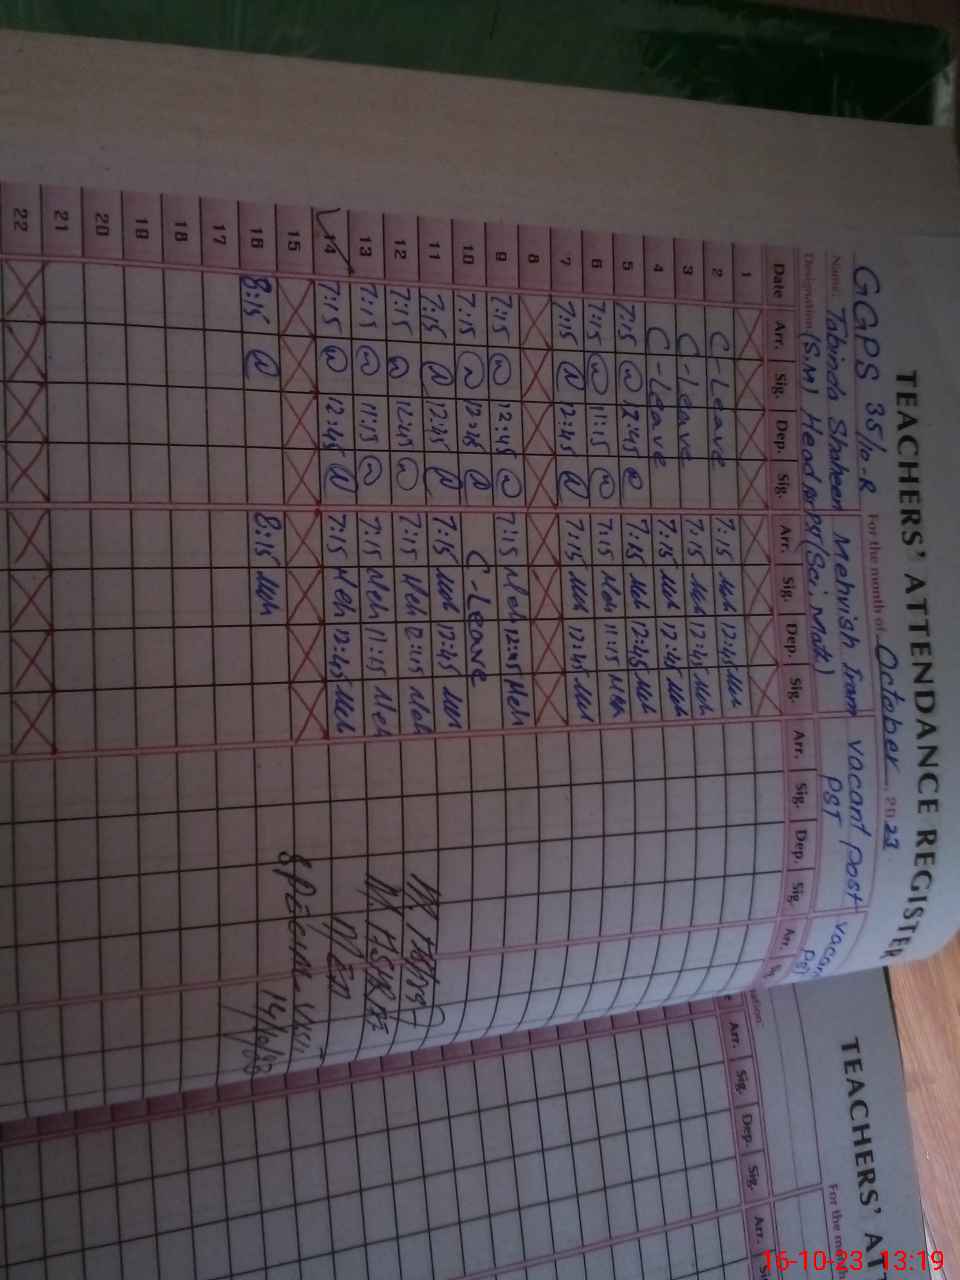 TEACHERS' ATTENDANCE REGISTER
GGPS 35/10-R For the month of October 2023
Name: Tabinda Shaheen Mehvish Iram vacant post vacan
Designation (S.M) Head (Sci Math) PST PST
Date Arr. Sig. Dep. Sig. Arr. Sig. Dep. Sig. Arr. Sig. Dep. Sig. Arr.
1
2 C-Leave 7:15 Meh 12:45 Meh
3 C-Leave 7:15 Meh 12:45 Meh
4 C-Leave 7:15 Meh 12:45 Meh
5 7:15 12:45 7:15 Meh 12:45 Meh
6 7:15 11:15 7:15 Meh 11:15 Meh
7 7:15 12:45 7:15 Meh 12:45 Meh
8
9 7:15 12:45 7:15 Meh 12:45 Meh
10 7:15 12:45 C-Leave
11 7:15 12:45 7:15 Meh 12:45 Meh
12 7:15 12:45 7:15 Meh Meh
13 7:15 11:15 7:15 Meh 11:15 Meh
14 7:15 12:45 7:15 Meh 12:45 Meh
15
16 8:15 8:15 Meh
17
18
19
20
21
22
TEACHERS' AT
For the m
Arr. Sig. Dep. Sig. Arr.
16-10-23 13:19